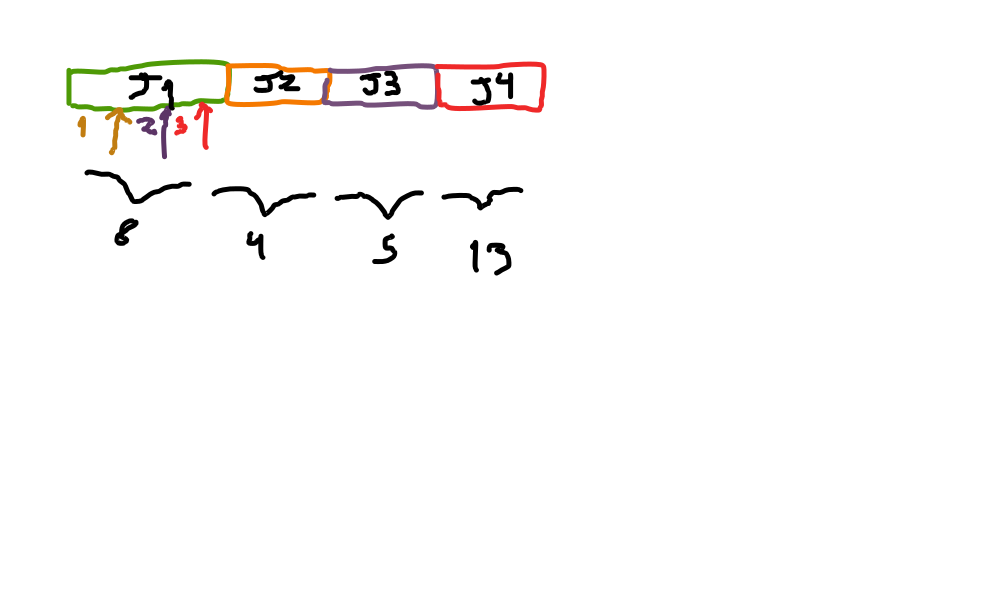 J1 J2 J3 J4
1 2 3
8 4 5 13